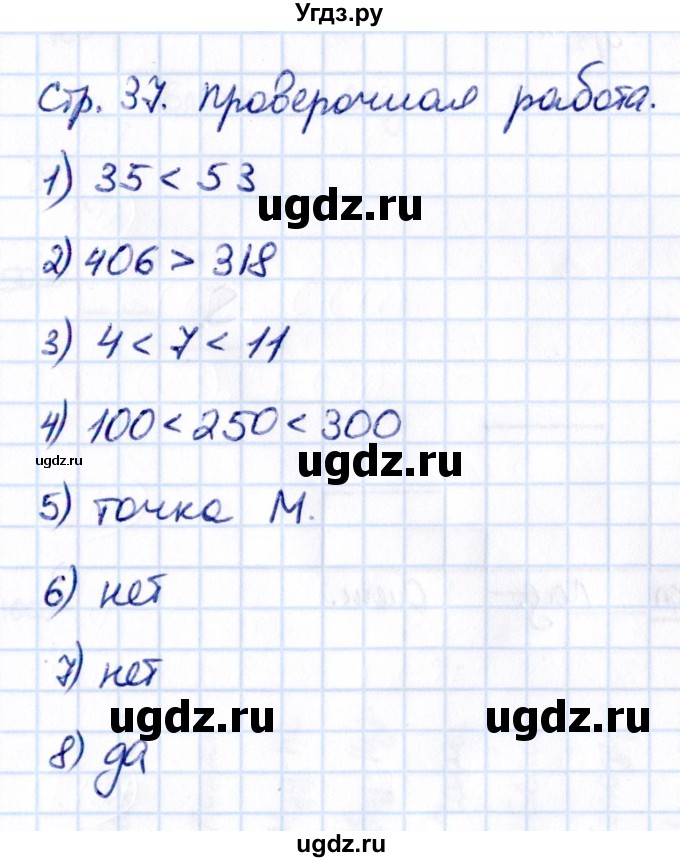 Угдз.ру
Стр. 37. Проверочная работа.
1) 35 < 53
ugdz.ru
2) 406 > 318
3) 4 < 7 < 11
4) 100 < 250 < 300
ugdz.ru
ugdz.ru
5) точка М.
6) нет
7) нет
ugdz.ru
ugdz.ru
8) да
ugdz.ru